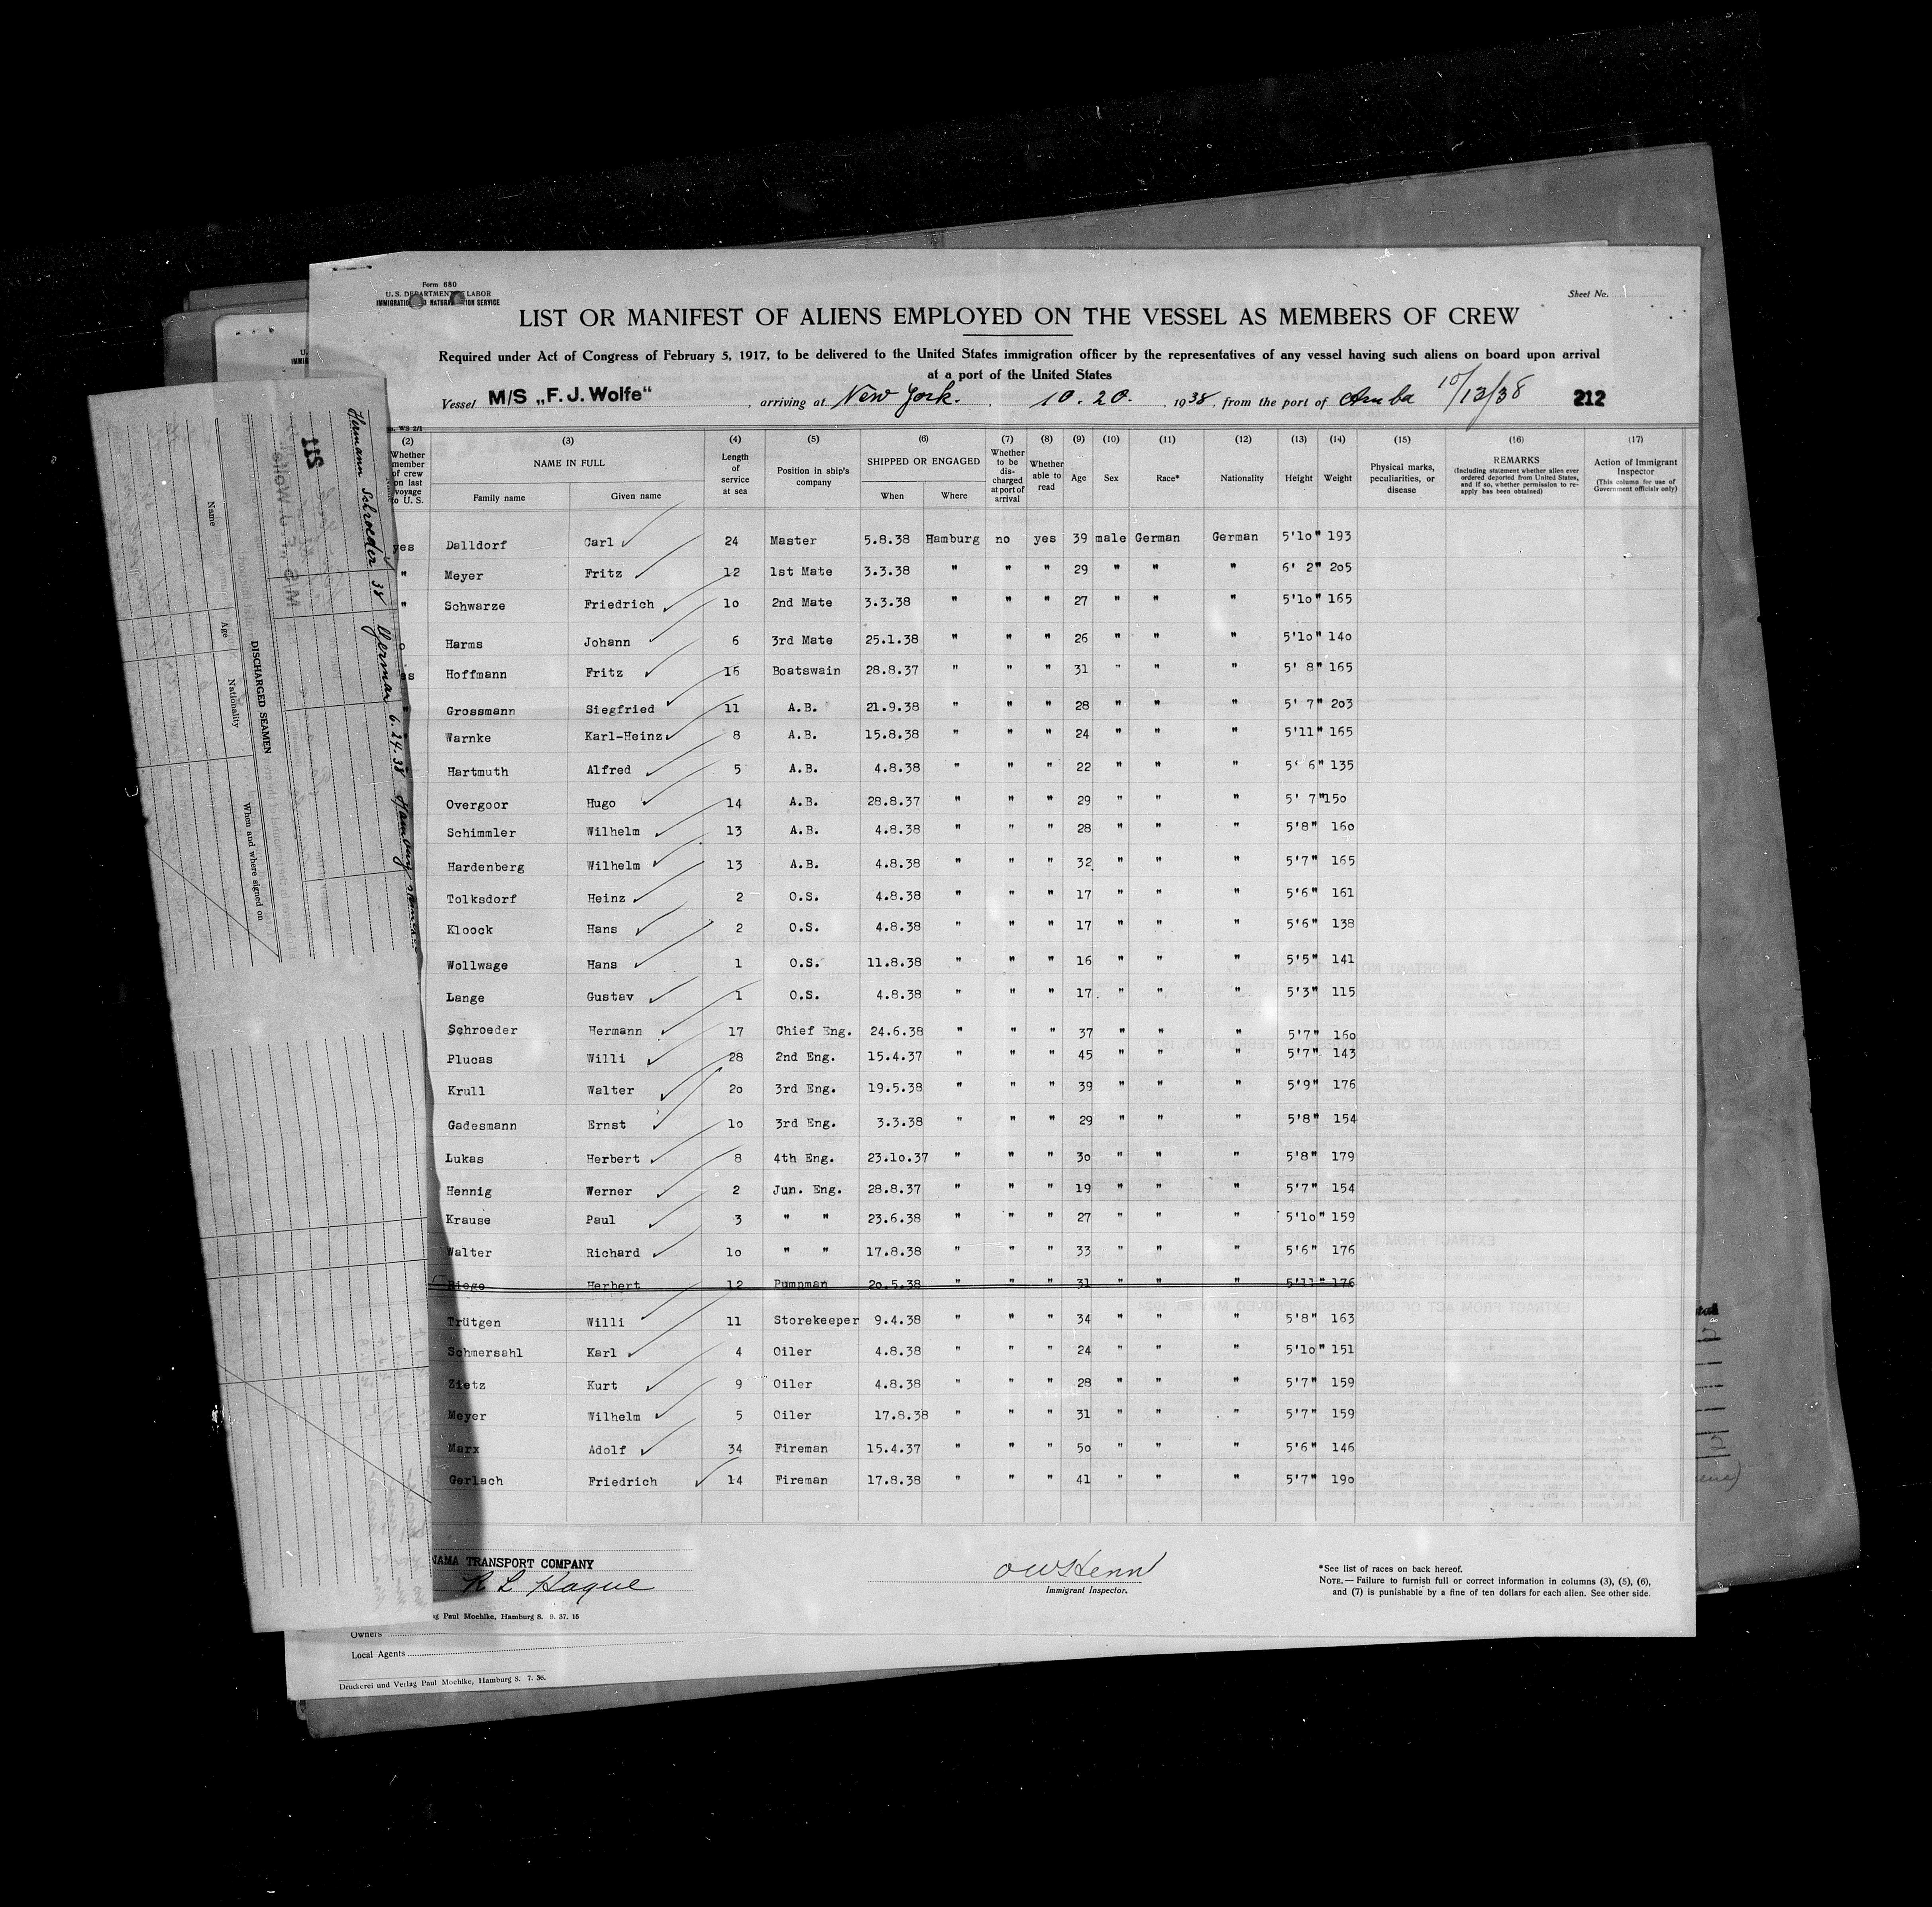 Form 680
U. S. DEPARTMENT LABOR
Sheet No.
LIST OR MANIFEST OF ALIENS EMPLOYED ON THE VESSEL AS MEMBERS OF CREW
Required under Act of Congress of February 5, 1917, to be delivered to the United States immigration officer by the representatives of any vessel having such aliens on board upon arrival
at a port of the United States
Vessel M/S „F. J. Wolfe“ , arriving at New York. 10. 20. , 1938, from the port of Aruba 10/13/38 212
(2) (3) (4) (5) (6) (7) (8) (9) (10) (11) (12) (13) (14) (15) (16) (17)
Whether member of crew on last voyage to U. S.
NAME IN FULL
Family name Given name
Length of service at sea
Position in ship's company
SHIPPED OR ENGAGED
When Where
Whether to be discharged at port of arrival
Whether able to read
Age Sex Race* Nationality Height Weight
Physical marks, peculiarities, or disease
REMARKS
(Including statement whether alien ever ordered deported from United States, and if so, whether permission to reapply has been obtained)
Action of Immigrant Inspector
(This column for use of Government officials only)
yes Dalldorf Carl 24 Master 5.8.38 Hamburg no yes 39 male German German 5'1o" 193
" Meyer Fritz 12 1st Mate 3.3.38 " " " 29 " " " 6' 2" 2o5
" Schwarze Friedrich 1o 2nd Mate 3.3.38 " " " 27 " " " 5'1o" 165
Harms Johann 6 3rd Mate 25.1.38 " " " 26 " " " 5'1o" 14o
Hoffmann Fritz 16 Boatswain 28.8.37 " " " 31 " " " 5' 8" 165
Grossmann Siegfried 11 A.B. 21.9.38 " " " 28 " " " 5' 7" 2o3
Warnke Karl-Heinz 8 A.B. 15.8.38 " " " 24 " " " 5'11" 165
Hartmuth Alfred 5 A.B. 4.8.38 " " " 22 " " " 5' 6" 135
Overgoor Hugo 14 A.B. 28.8.37 " " " 29 " " " 5' 7" 15o
Schimmler Wilhelm 13 A.B. 4.8.38 " " " 28 " " " 5'8" 16o
Hardenberg Wilhelm 13 A.B. 4.8.38 " " " 32 " " " 5'7" 165
Tolksdorf Heinz 2 O.S. 4.8.38 " " " 17 " " " 5'6" 161
Kloock Hans 2 O.S. 4.8.38 " " " 17 " " " 5'6" 138
Wollwage Hans 1 O.S. 11.8.38 " " " 16 " " " 5'5" 141
Lange Gustav 1 O.S. 4.8.38 " " " 17 " " " 5'3" 115
Schroeder Hermann 17 Chief Eng. 24.6.38 " " " 37 " " " 5'7" 16o
Plucas Willi 28 2nd Eng. 15.4.37 " " " 45 " " " 5'7" 143
Krull Walter 2o 3rd Eng. 19.5.38 " " " 39 " " " 5'9" 176
Gadesmann Ernst 1o 3rd Eng. 3.3.38 " " " 29 " " " 5'8" 154
Lukas Herbert 8 4th Eng. 23.1o.37 " " " 3o " " " 5'8" 179
Hennig Werner 2 Jun. Eng. 28.8.37 " " " 19 " " " 5'7" 154
Krause Paul 3 " " 23.6.38 " " " 27 " " " 5'1o" 159
Walter Richard 1o " " 17.8.38 " " " 33 " " " 5'6" 176
Riege Herbert 12 Pumpman 2o.5.38 " " " 31 " " " 5'11" 176
Trütgen Willi 11 Storekeeper 9.4.38 " " " 34 " " " 5'8" 163
Schmersahl Karl 4 Oiler 4.8.38 " " " 24 " " " 5'1o" 151
Zietz Kurt 9 Oiler 4.8.38 " " " 28 " " " 5'7" 159
Meyer Wilhelm 5 Oiler 17.8.38 " " " 31 " " " 5'7" 159
Marx Adolf 34 Fireman 15.4.37 " " " 5o " " " 5'6" 146
Gerlach Friedrich 14 Fireman 17.8.38 " " " 41 " " " 5'7" 19o
TRANSPORT COMPANY
R L Hague
Immigrant Inspector.
*See list of races on back hereof.
NOTE.—Failure to furnish full or correct information in columns (3), (5), (6),
and (7) is punishable by a fine of ten dollars for each alien. See other side.
Paul Moehlke, Hamburg 8. 9. 37. 15
Owners
Local Agents
Druckerei und Verlag Paul Moehlke, Hamburg 8. 7. 36.
Hermann Schroeder 38 German 6.24.38 Hamburg
DISCHARGED SEAMEN
Name Age Nationality When and where signed on